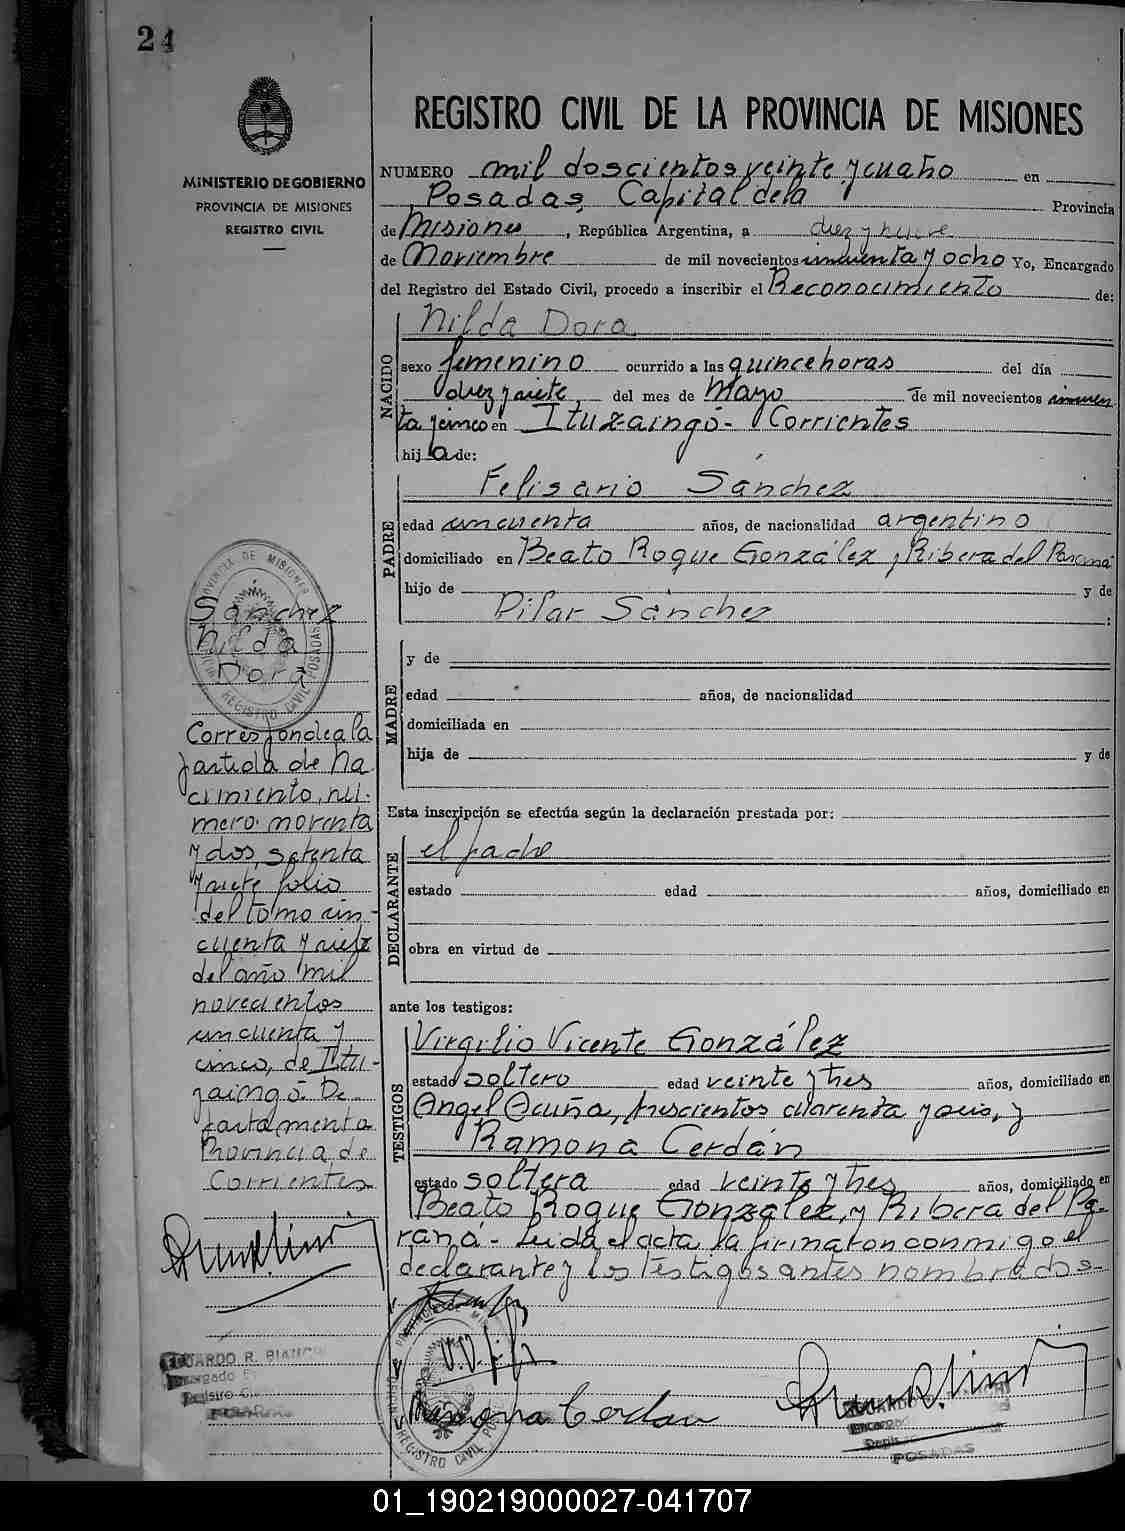 24
MINISTERIO DE GOBIERNO
PROVINCIA DE MISIONES
REGISTRO CIVIL
REGISTRO CIVIL DE LA PROVINCIA DE MISIONES
NUMERO mil doscientos veinte y cuatro en
Posadas, Capital de la Provincia
de Misiones, República Argentina, a diez y nueve
de Noviembre de mil novecientos cincuenta y ocho Yo, Encargado
del Registro del Estado Civil, procedo a inscribir el Reconocimiento de:
NACIDO
Nilda Dora
sexo femenino ocurrido a las quince horas del día
diez y siete del mes de Mayo de mil novecientos cincuen
ta y cinco en Ituzaingó - Corrientes
hij a de:
PADRE
Felisario Sánchez
edad cincuenta años, de nacionalidad argentino
domiciliado en Beato Roque González y Ribera del Paraná
hijo de y de
Pilar Sánchez :
MADRE
y de
edad años, de nacionalidad
domiciliada en
hija de y de
Esta inscripción se efectúa según la declaración prestada por:
DECLARANTE
el padre
estado edad años, domiciliado en
obra en virtud de
ante los testigos:
TESTIGOS
Virgilio Vicente González
estado soltero edad veinte y tres años, domiciliado en
Angel Acuña, trescientos cuarenta y seis, y
Ramona Cerdán
estado soltera edad veinte y tres años, domiciliado en
Beato Roque González, y Ribera del Pa-
raná - Leida el acta, la firmaron conmigo el
declarante y los testigos antes nombrados -
Ramona Cerdan
Sánchez
Nilda
Dora
Corresponde a la
partida de na
cimiento, nú-
mero noventa
y dos, setenta
y siete folio
del tomo cin-
cuenta y siete
del año mil
novecientos
cincuenta y
cinco, de Itu-
zaingó. De-
partamento
Provincia, de
Corrientes
PROVINCIA DE MISIONES
REGISTRO CIVIL POSADAS
EDUARDO R. BIANCHI
POSADAS
REGISTRO CIVIL
EDUARDO
POSADAS
01_190219000027-041707